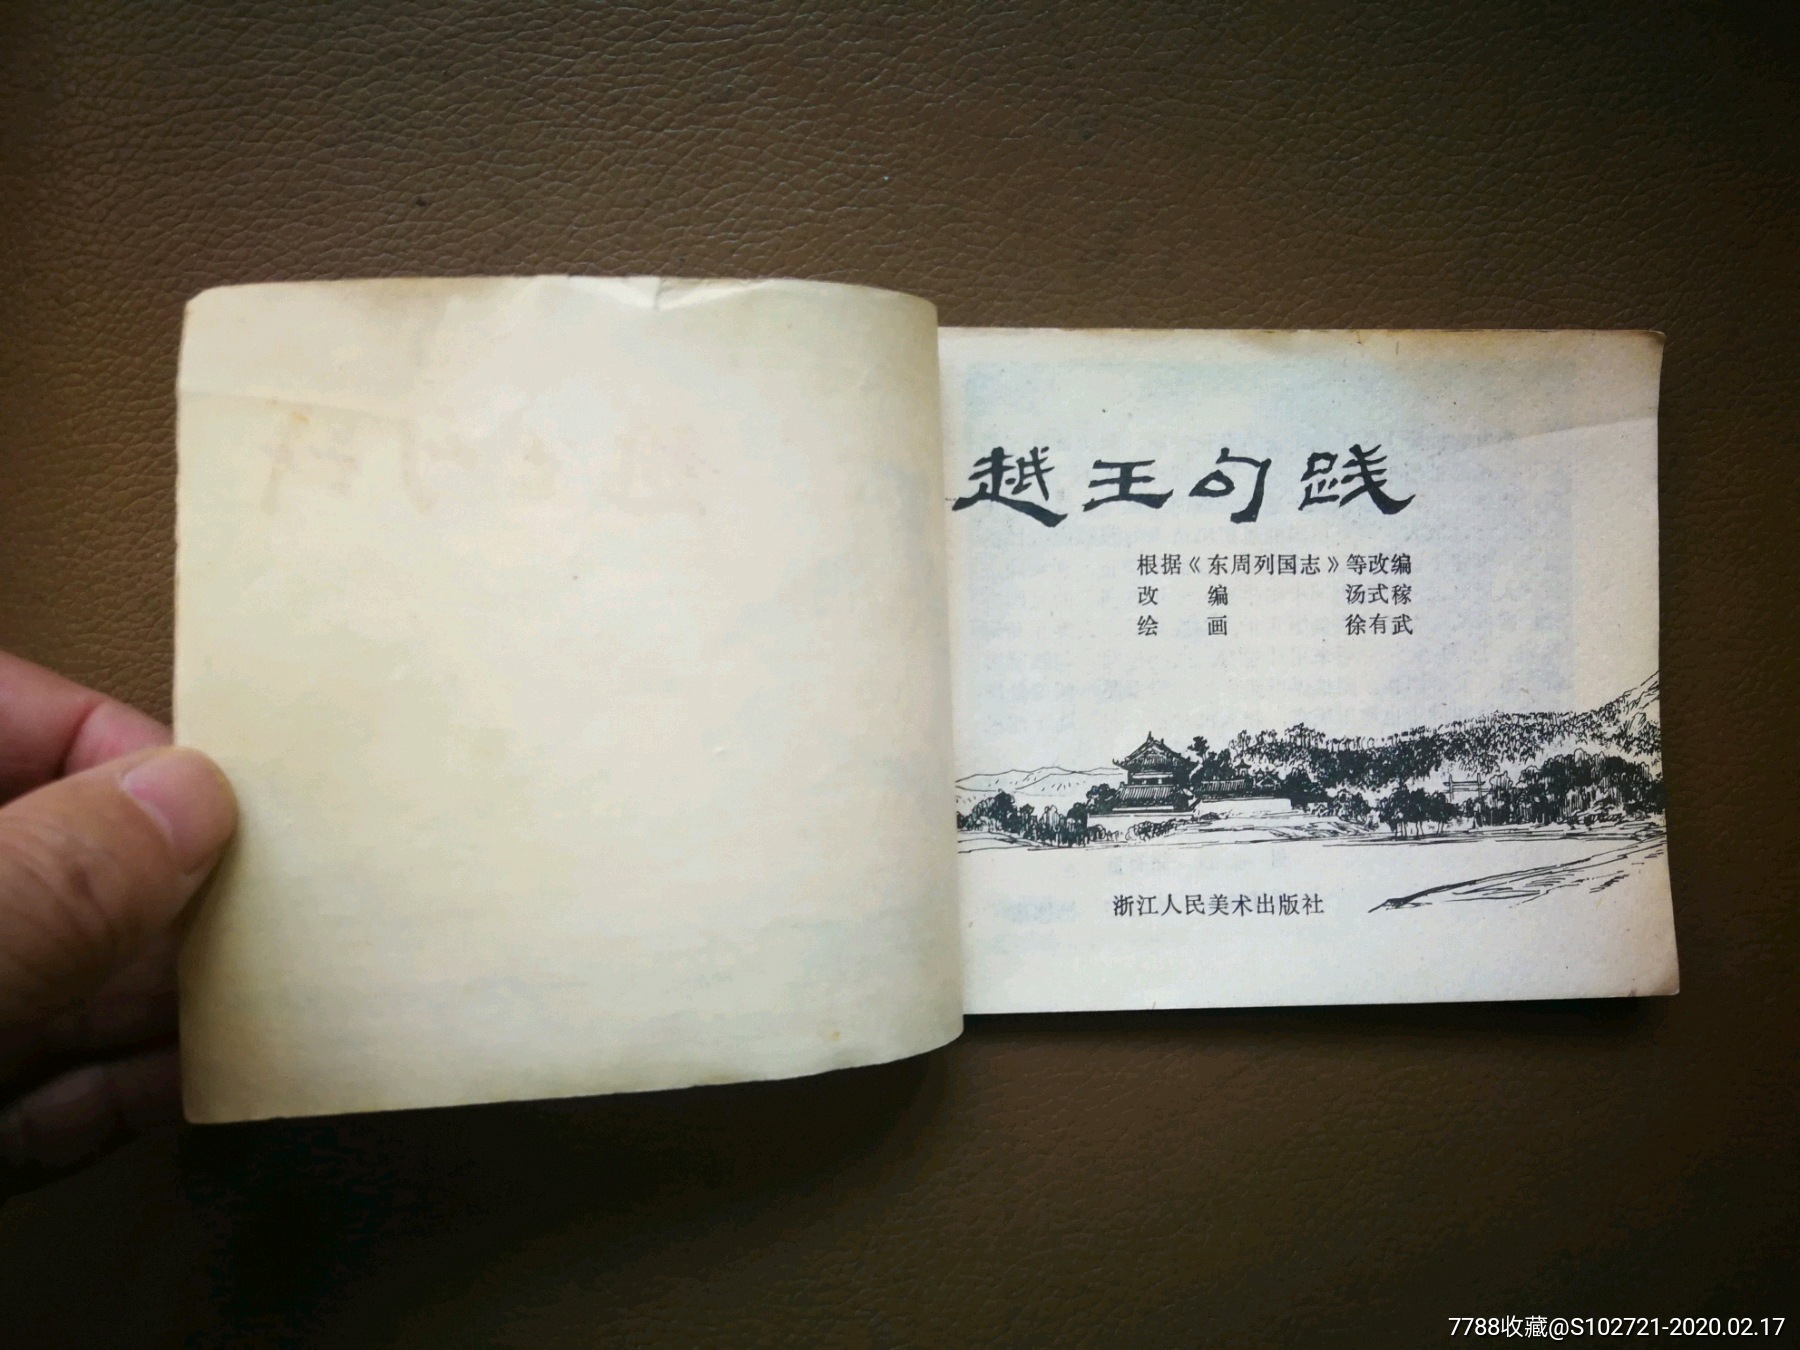 越王句践
根据《东周列国志》等改编
改 编 汤式稼
绘 画 徐有武
浙江人民美术出版社
7788收藏@S102721-2020.02.17